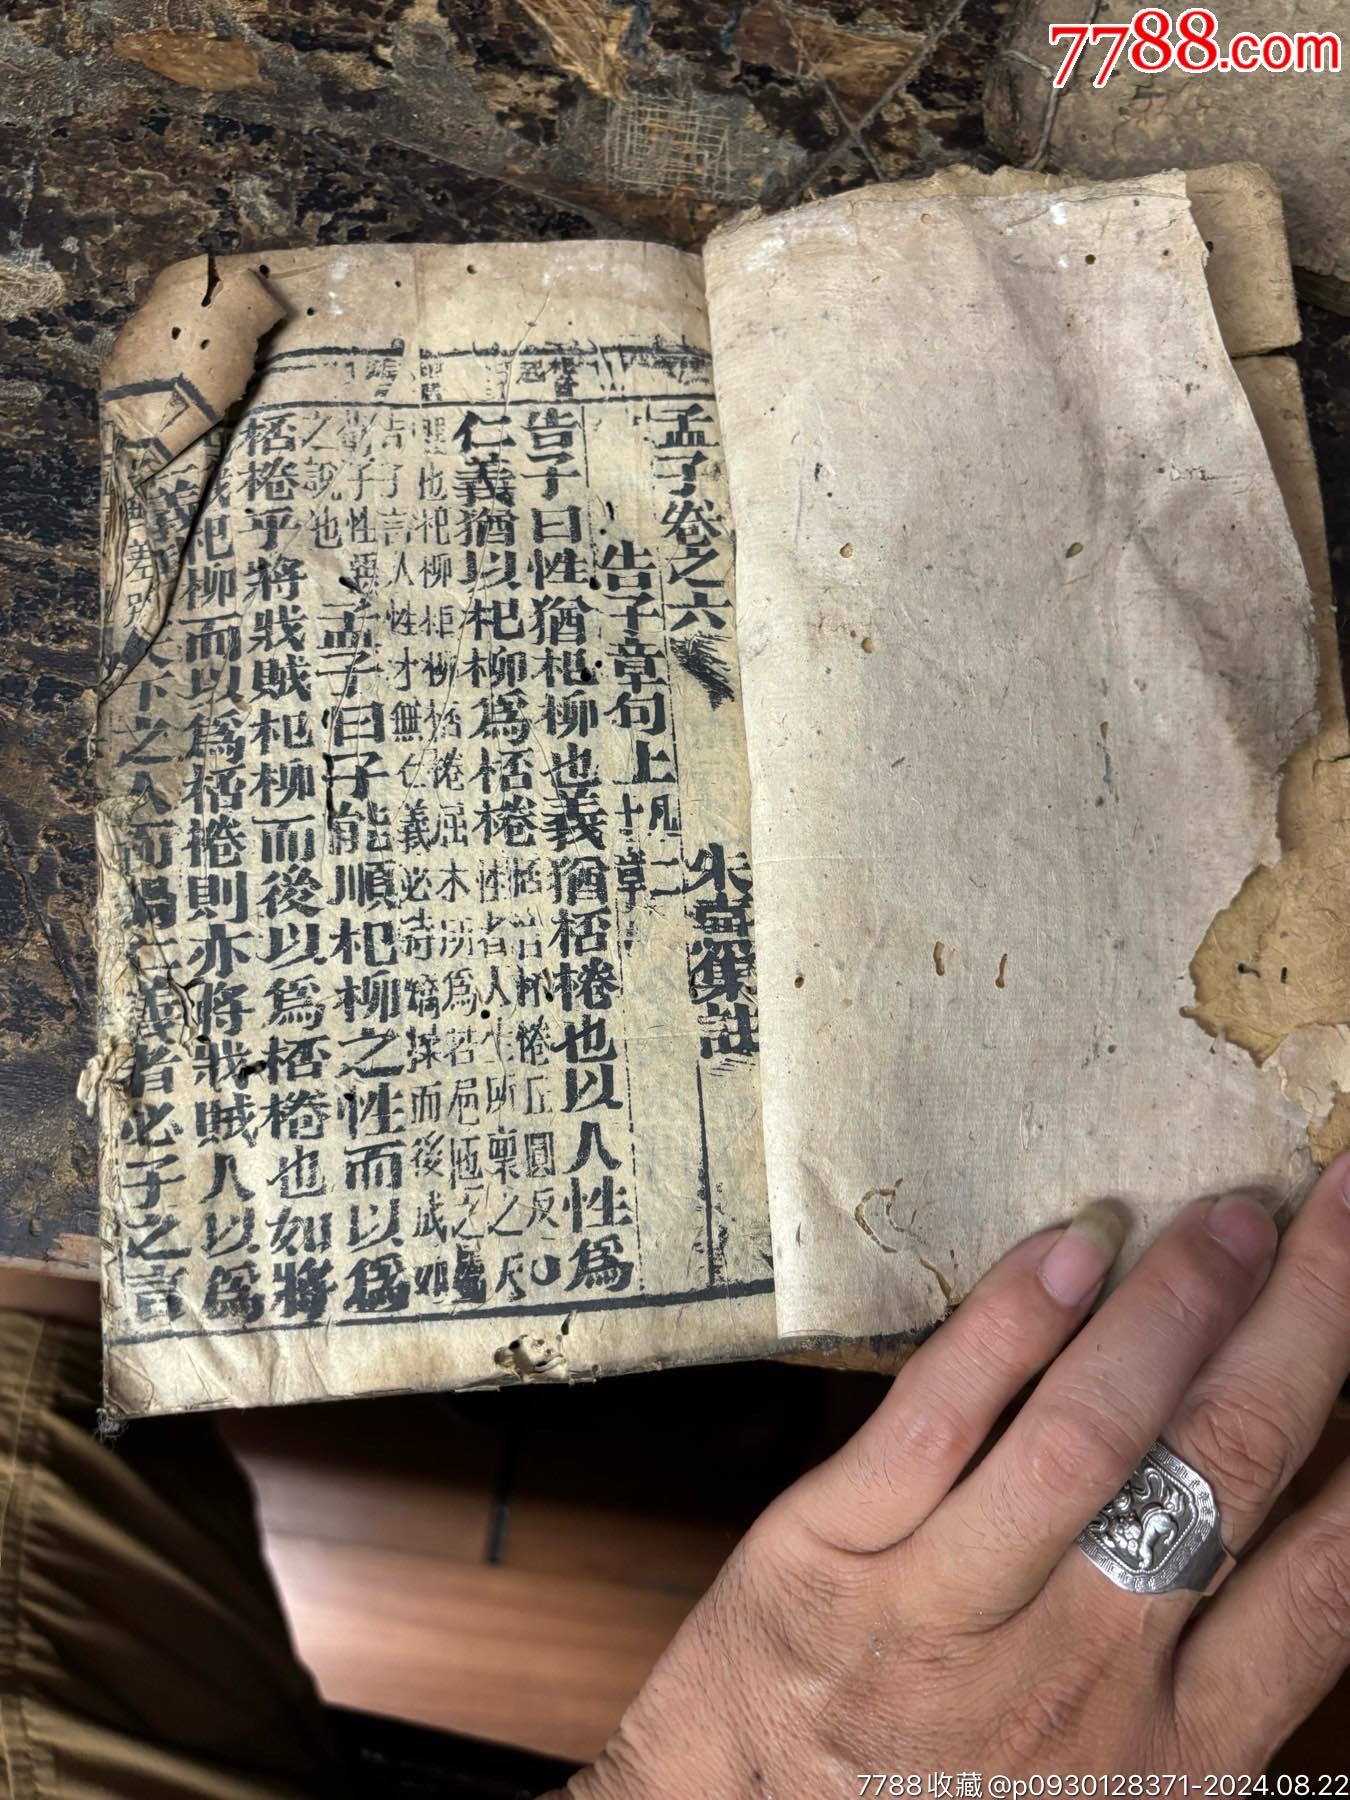 孟子卷之六 朱熹集註
告子章句上 凡二
十章
告子曰性猶杞柳也義猶桮棬也以人性爲
仁義猶以杞柳爲桮棬 桮音杯棬丘圓反○
性者人生所稟之天
理也杞柳柜柳桮棬屈木所爲若巵匜之屬
告子言人性才無仁義必待矯揉而後成如
荀子性惡
之說也 孟子曰子能順杞柳之性而以爲
桮棬乎將戕賊杞柳而後以爲桮棬也如將
戕賊杞柳而以爲桮棬則亦將戕賊人以爲
義 天下之人而禍仁義者必子之言
差別
7788.com
7788收藏@p0930128371-2024.08.22